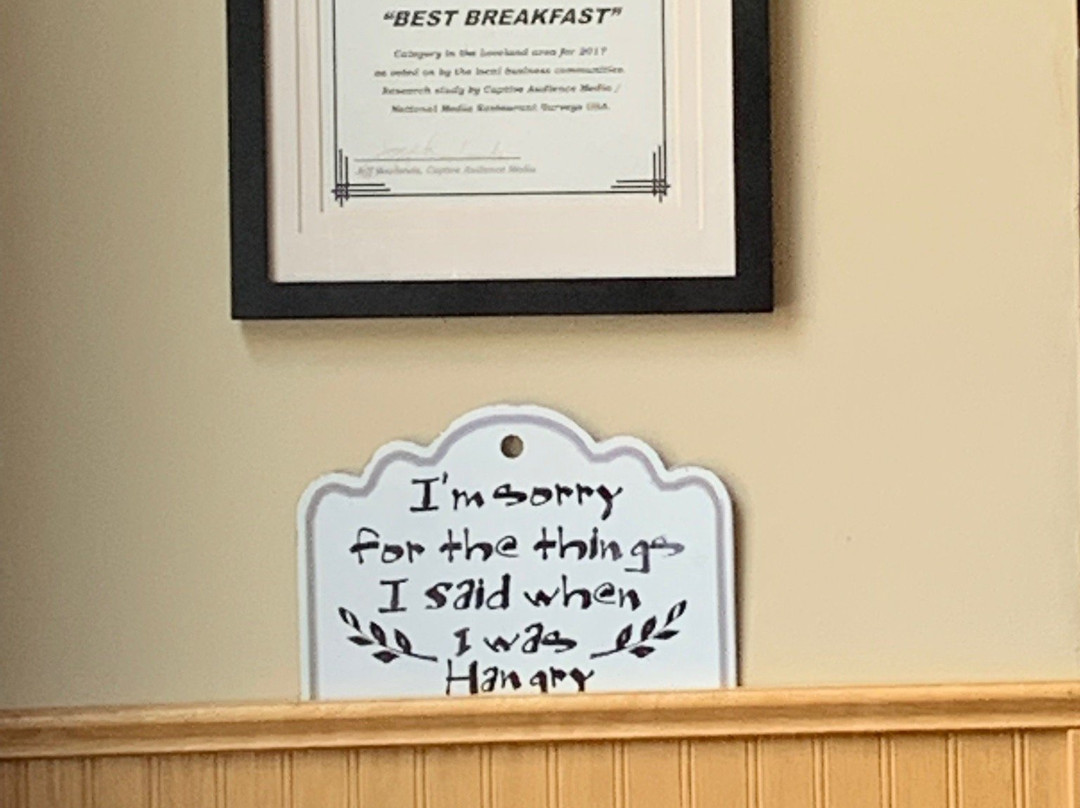 “BEST BREAKFAST”
Category in the Loveland area for 2017
as voted on by the local business communities
Research study by Captive Audience Media /
National Media Restaurant Surveys USA.
Captive Audience Media
I'm sorry
for the things
I said when
I was
Hangry